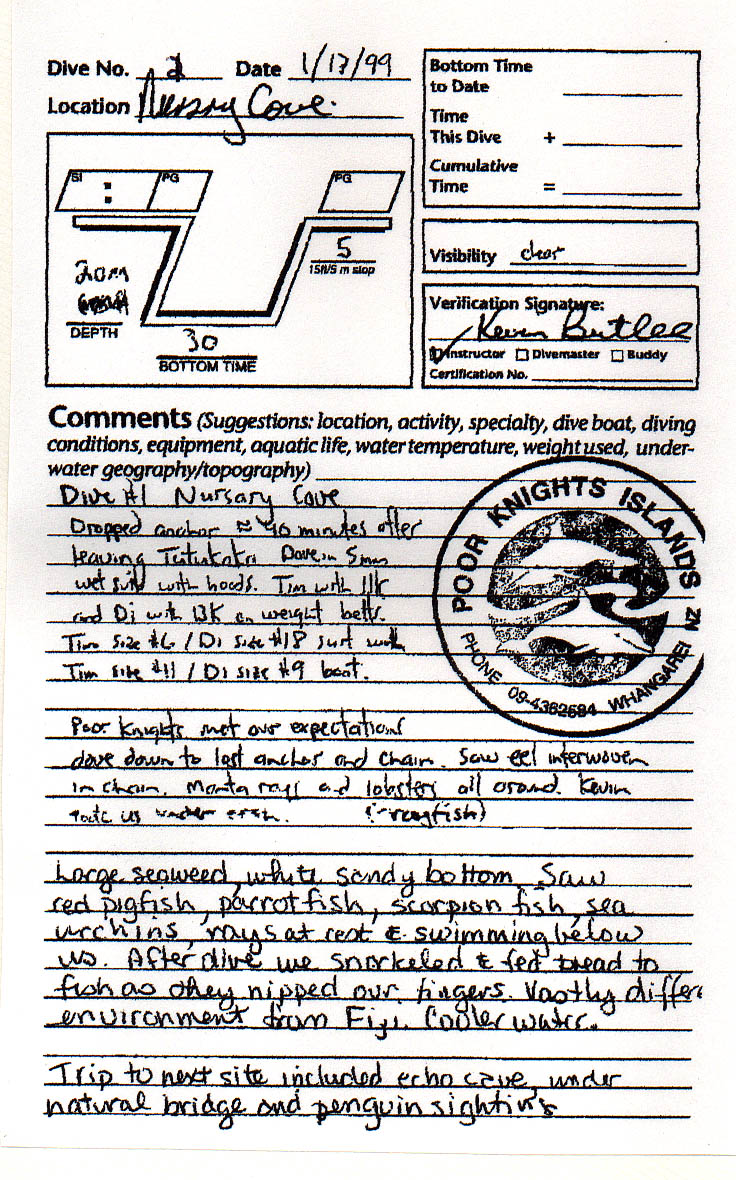 Dive No. 2 Date 1/17/99
Location Nursary Cove.
Bottom Time
to Date
Time
This Dive +
Cumulative
Time =
SI : PG
PG
20m
DEPTH
5
15ft/5 m stop
30
BOTTOM TIME
Visibility clear
Verification Signature:
Kevin Butlee
Instructor Divemaster Buddy
Certification No.
Comments (Suggestions: location, activity, specialty, dive boat, diving
conditions, equipment, aquatic life, water temperature, weight used, under-
water geography/topography)
Dive #1 Nursary Cove
Dropped anchor ≈ 40 minutes after
leaving Tutukaka Dove in 5mm
wet suits with hoods. Tim with 11K
and Di with 13K on weight belts.
Tim size #6 / Di size #18 suit with
Tim size #11 / Di size #9 boot.
POOR KNIGHTS ISLANDS NZ
PHONE 09-4362584 WHANGAREI
Poor Knights met our expectations
dove down to lost anchor and chain. Saw eel interwoven
in chain. Manta rays and lobsters all around. Kevin
took us under (crayfish)
Large seaweed, white sandy bottom. Saw
red pigfish, parrotfish, scorpion fish, sea
urchins, rays at rest & swimming below
us. After dive we snorkeled & fed bread to
fish as they nipped our fingers. Vastly differe
environment from Fiji. Cooler water.
Trip to next site included echo cave, under
natural bridge and penguin sightings